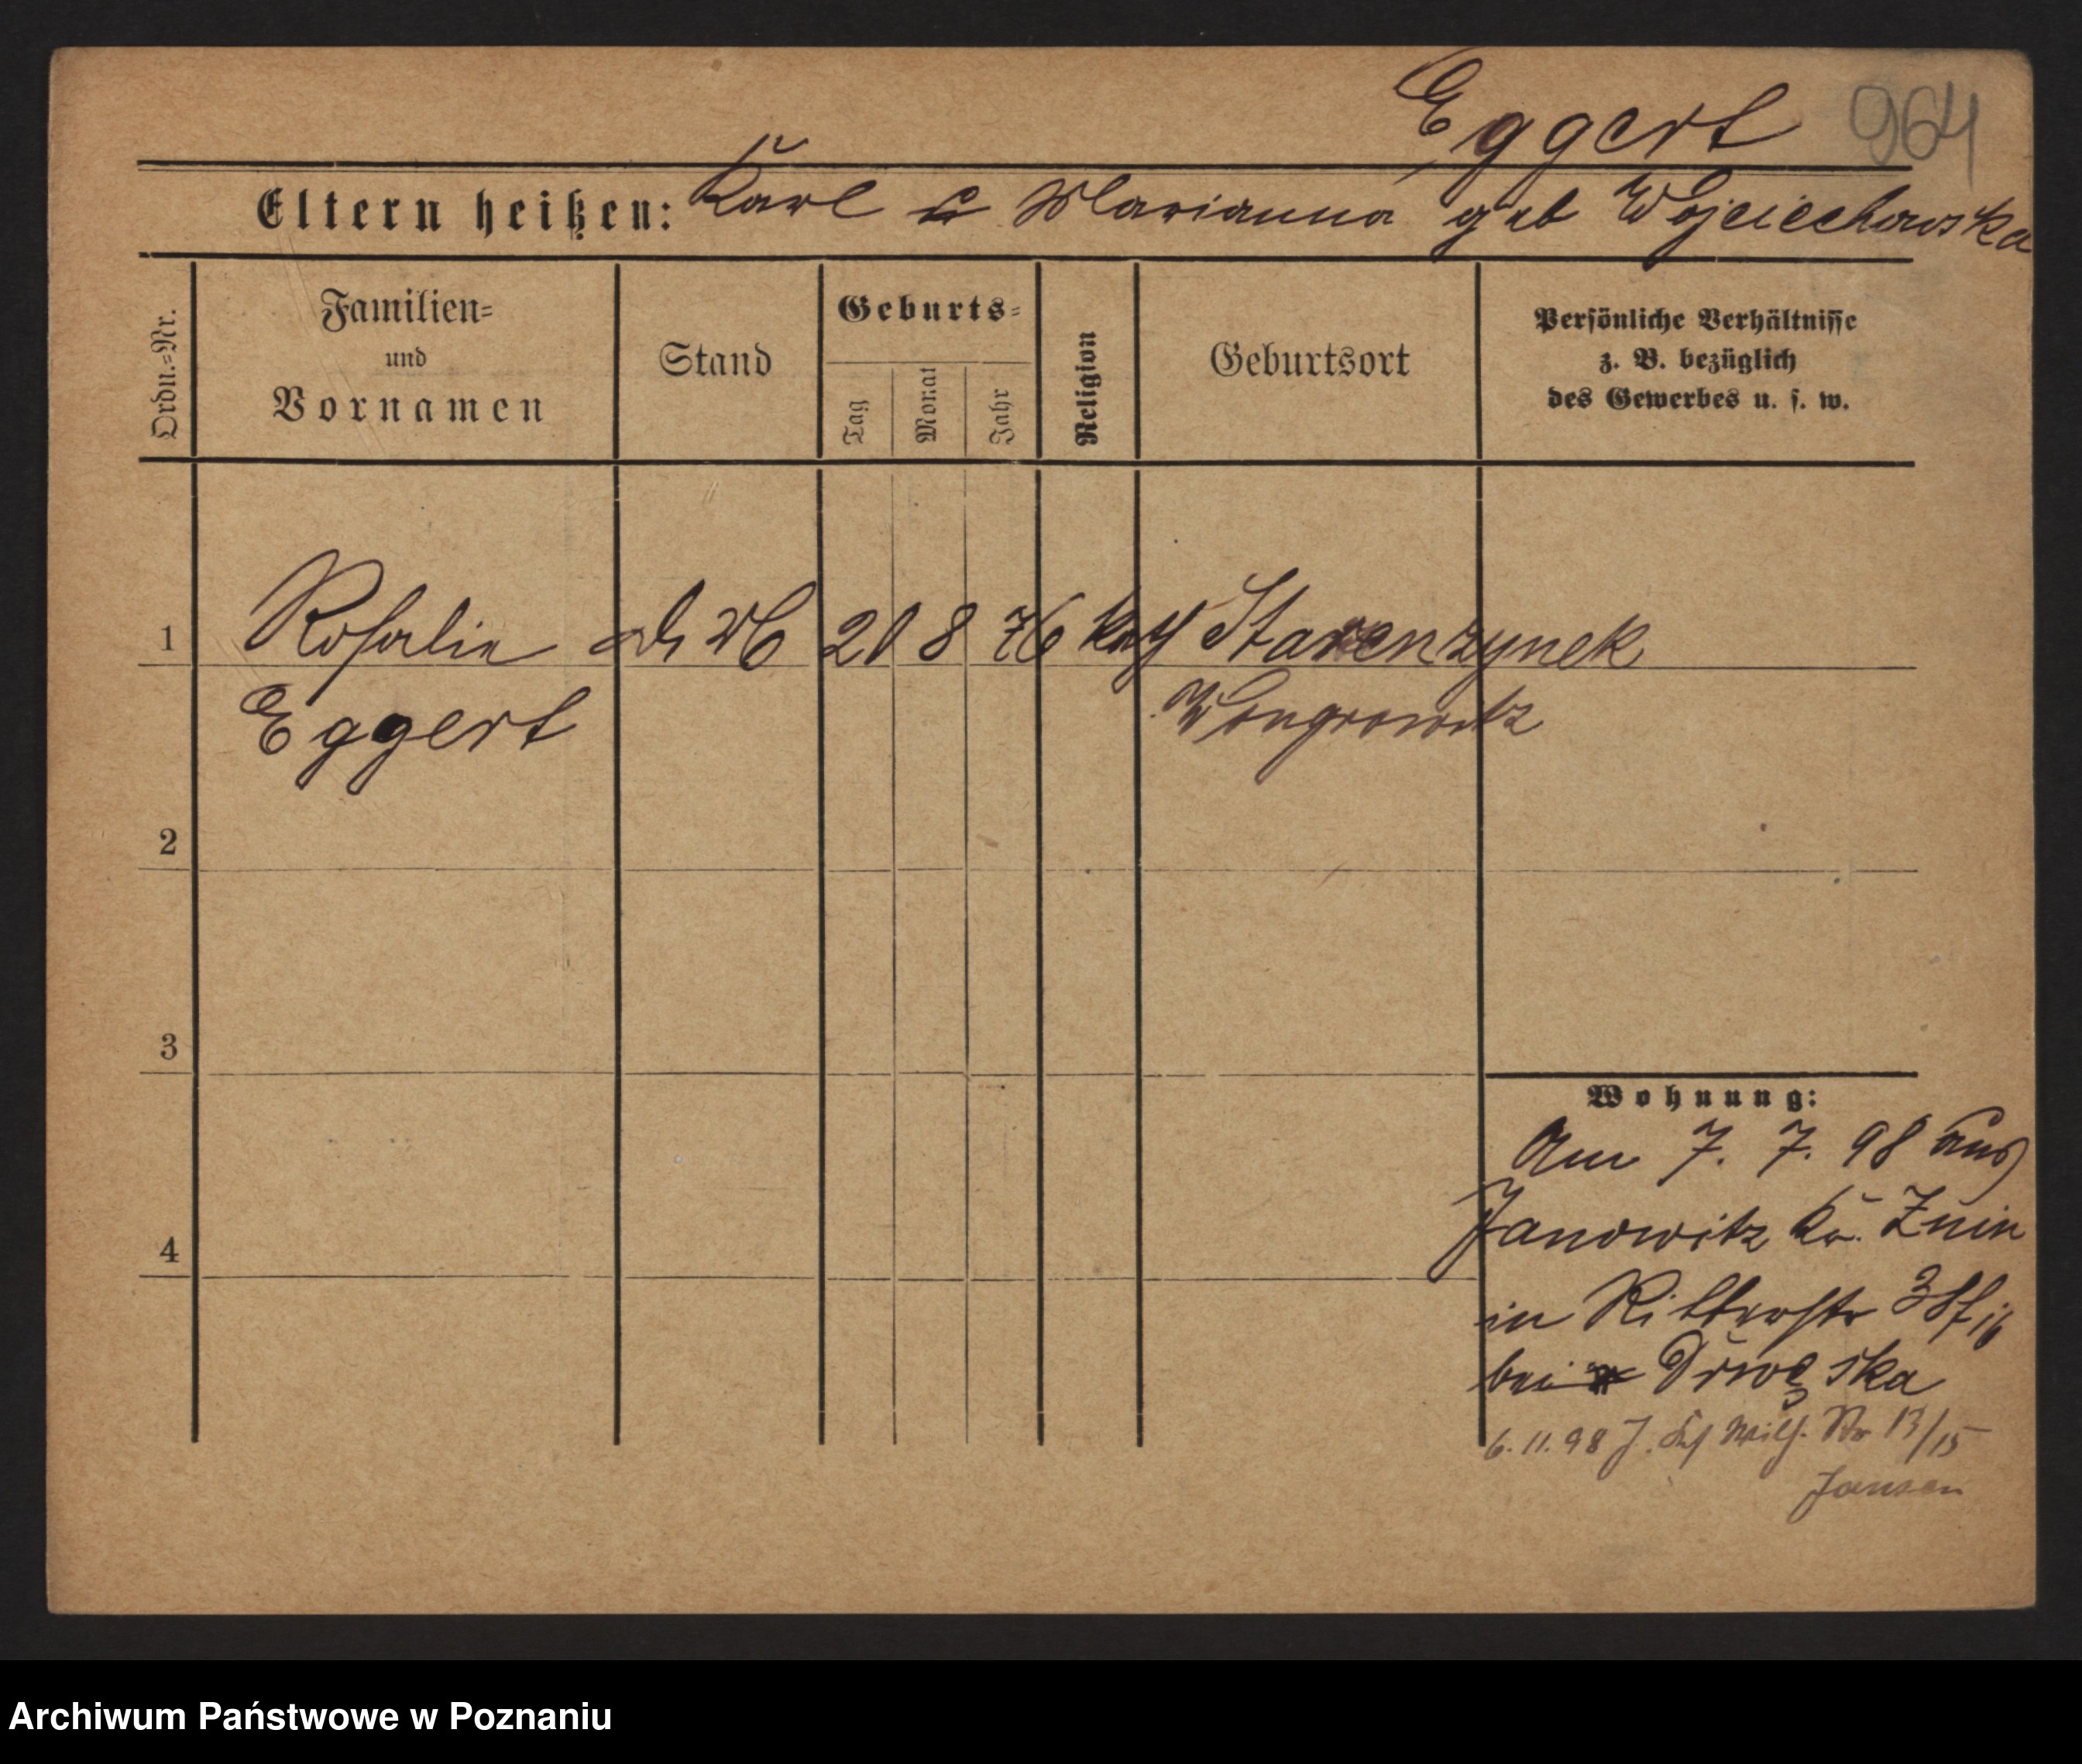 Eggert 964
Eltern heißen: Karl & Marianna geb Wojciechowska
Ordn.=Nr.
Familien=
und
Vornamen
Stand
Geburts=
Tag
Monat
Jahr
Religion
Geburtsort
Persönliche Verhältnisse
z. B. bezüglich
des Gewerbes u. s. w.
1 Rosalie 20 8 76 kath Starenzynek
Eggert Wongrowitz
2
3
Wohnung:
Am 7. 7. 98 aus
Janowitz Kr. Znin
in Ritterstr
bei Drwęska
4
6. 11. 98 13/15
Jansen
Archiwum Państwowe w Poznaniu